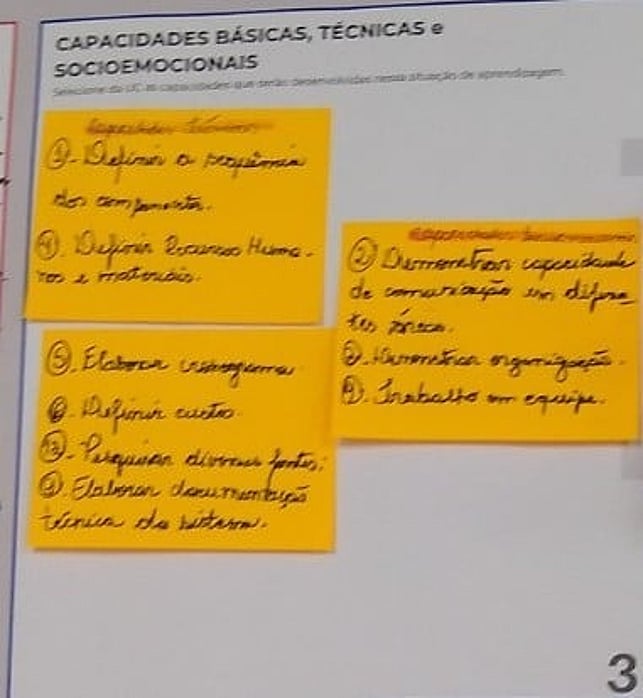 CAPACIDADES BÁSICAS, TÉCNICAS e
SOCIOEMOCIONAIS
Selecione da UC as capacidades que serão desenvolvidas nesta situação de aprendizagem.
Capacidades Técnicas
③- Definir a sequência
dos componentes.
④. Definir Recursos Huma-
nos e materiais.
⑤. Elaborar cronograma
Definir custo.
Pesquisar diversas fontes;
⑨. Elaborar documentação
técnica do sistema.
Capacidades Socioemocionais
② Demonstrar capacidade
de comunicação em diferen
tes áreas.
Demonstrar organização.
Trabalho em equipe.
3